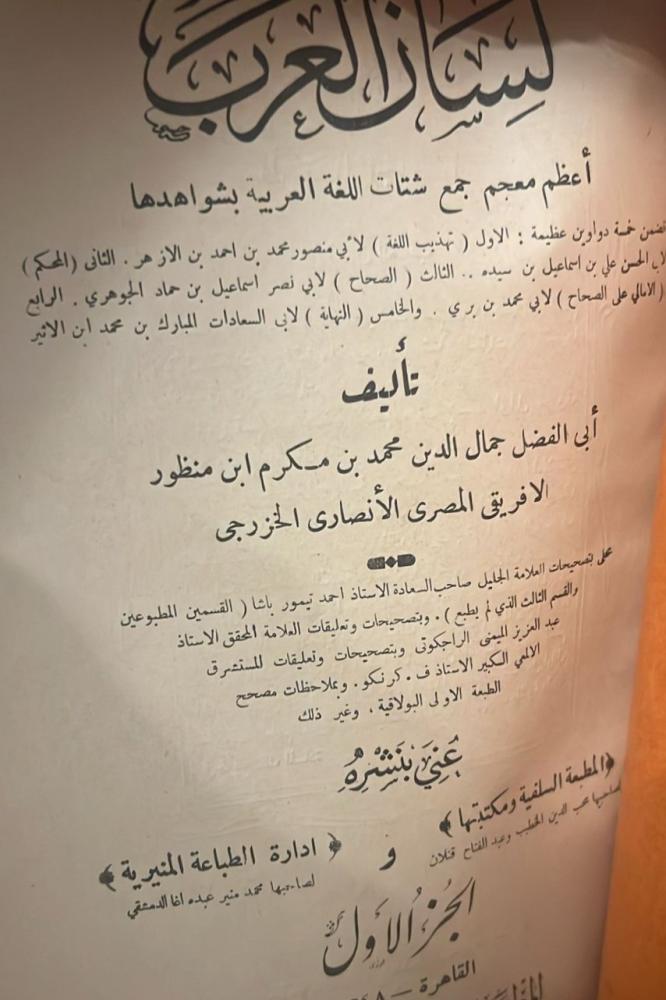 لسان العرب
أعظم معجم جمع شتات اللغة العربية بشواهدها
تضمن خمسة دواوين عظيمة : الاول ( تهذيب اللغة ) لأبي منصور محمد بن احمد بن الازهر . الثانى (المحكم)
لابي الحسن علي بن اسماعيل بن سيده .. الثالث ( الصحاح ) لابي نصر اسماعيل بن حماد الجوهري . الرابع
( الامالي على الصحاح ) لابي محمد بن بري . والخامس ( النهاية ) لابى السعادات المبارك بن محمد ابن الاثير
تأليف
أبى الفضل جمال الدين محمد بن مكرم ابن منظور
الافريقى المصرى الأنصارى الخزرجى
محلى بتصحيحات العلامة الجليل صاحب السعادة الاستاذ احمد تيمور باشا ( القسمين المطبوعين
والقسم الثالث الذي لم يطبع ) . وبتصحيحات وتعليقات العلامة المحقق الاستاذ
عبد العزيز الميمنى الراجكوتى وبتصحيحات وتعليقات المستشرق
الالمعي الكبير الاستاذ ف . كرنكو . وبملاحظات مصحح
الطبعة الاولى البولاقية ، وغير ذلك
عُنِيَ بنَشْرِهُ
﴿ المطبعة السلفية ومكتبتها ﴾
لصاحبها محب الدين الخطيب وعبد الفتاح قتلان
و
﴿ ادارة الطباعة المنيرية ﴾
لصاحبها محمد منير عبده اغا الدمشقي
الجزء الأول
القاهرة —